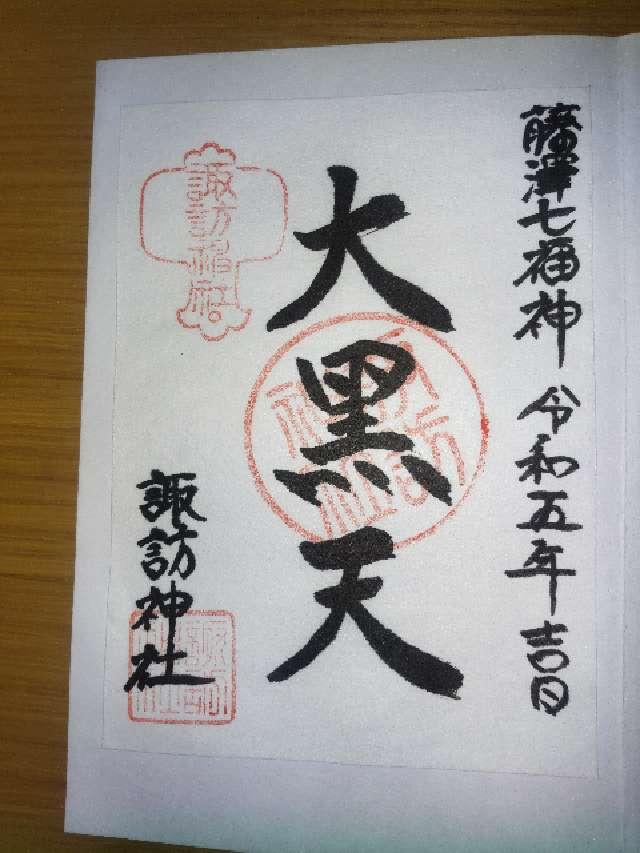 藤澤七福神 令和五年吉日
大黒天
諏訪神社
諏訪神社